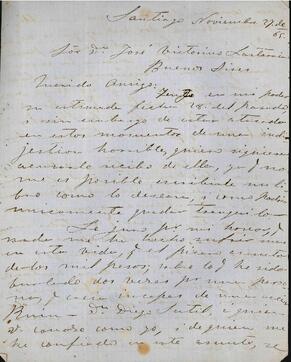 Santiago Noviembre 27 de
65.
Sor Dn José Victorino Lastarria
Buenos Aires
Querido Amigo: Tengo en mi poder
su estimada fecha 28 del pasado
i sin embargo de estar
en estos momentos de una
horrible, quiero siquiera
recibo de ella, ya q. no
me es posible escribirle un li
bro como lo deseara, i como
unicamente quedar
Le juro por mi honor, q.
nada me ha hecho sufrir mas
en esta vida, q. el pícaro asunto
de los mil pesos; sobre todo he sido
burlado dos veces por una perso
na, q. creia incapaz de una
Dn Diego Sutil, a quien
U. conoce como yo, i de quien
me confiado en este asunto, se